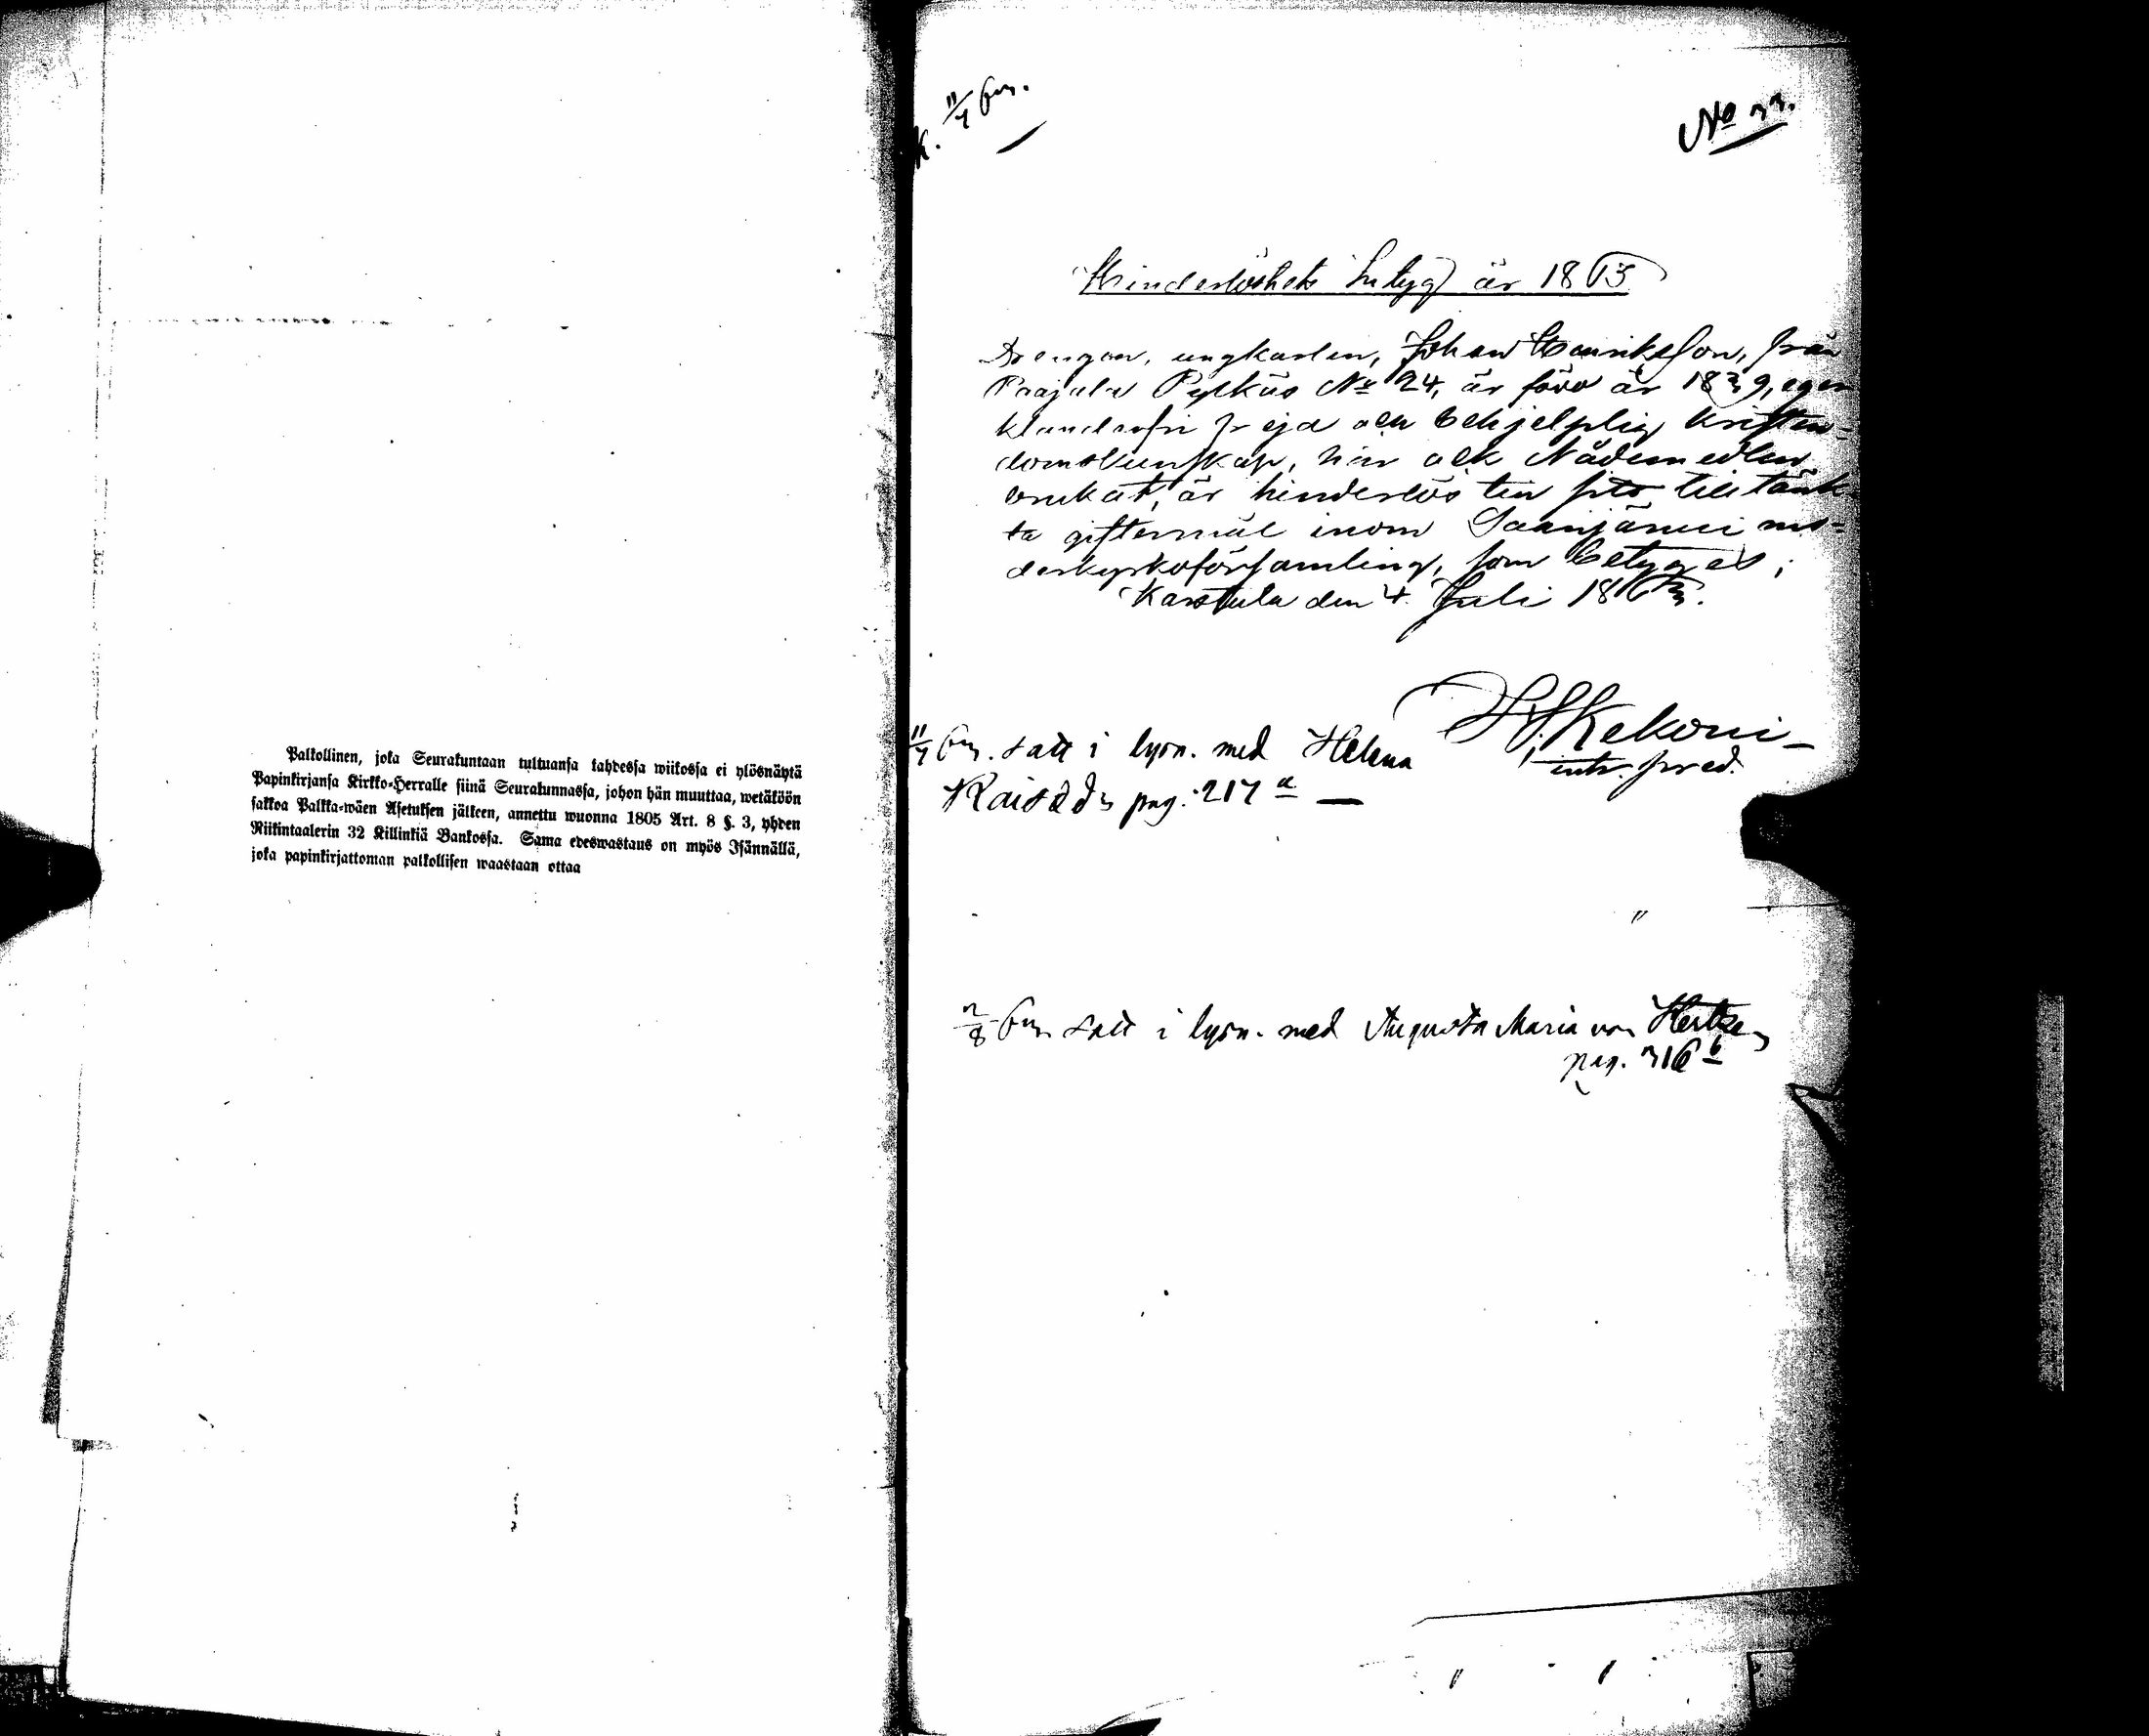 Palkollinen, joka Seurakuntaan tultuansa kahdessa wiikossa ei ylösnäytä
Papinkirjansa Kirkko-Herralle siinä Seurakunnassa, johon hän muuttaa, wetäköön
sakkoa Palkka-wäen Asetuksen jälkeen, annettu wuonna 1805 Art. 8 §. 3, yhden
Riikintaalerin 32 Killinkiä Bankossa. Sama edeswastaus on myös Isännällä,
joka papinkirjattoman palkollisen waastaan ottaa
k. 11/7 63.
No 33.
Hinderlöshets Intyg år 1863
Drengen, ungkarlen, Johan Henriksson, från
Paajala Pylkäs No 24, är född år 1839, eger
klanderfri frejd och behjelplig kristen-
domskunskap, har ock Nådemedlen
brukat, är hinderlös till sitt tilltänk-
ta giftermål inom Saarijärvi mo-
derkyrkoförsamling, som betygas;
Karstula den 4 Juli 1863.
H. Kekoni
intr. pred.
11/7 63. satt i lysn. med Helena
Kaisad:r pag. 217 a
2/8 63 satt i lysn. med Augusta Maria von Hertzen
pag. 316 b